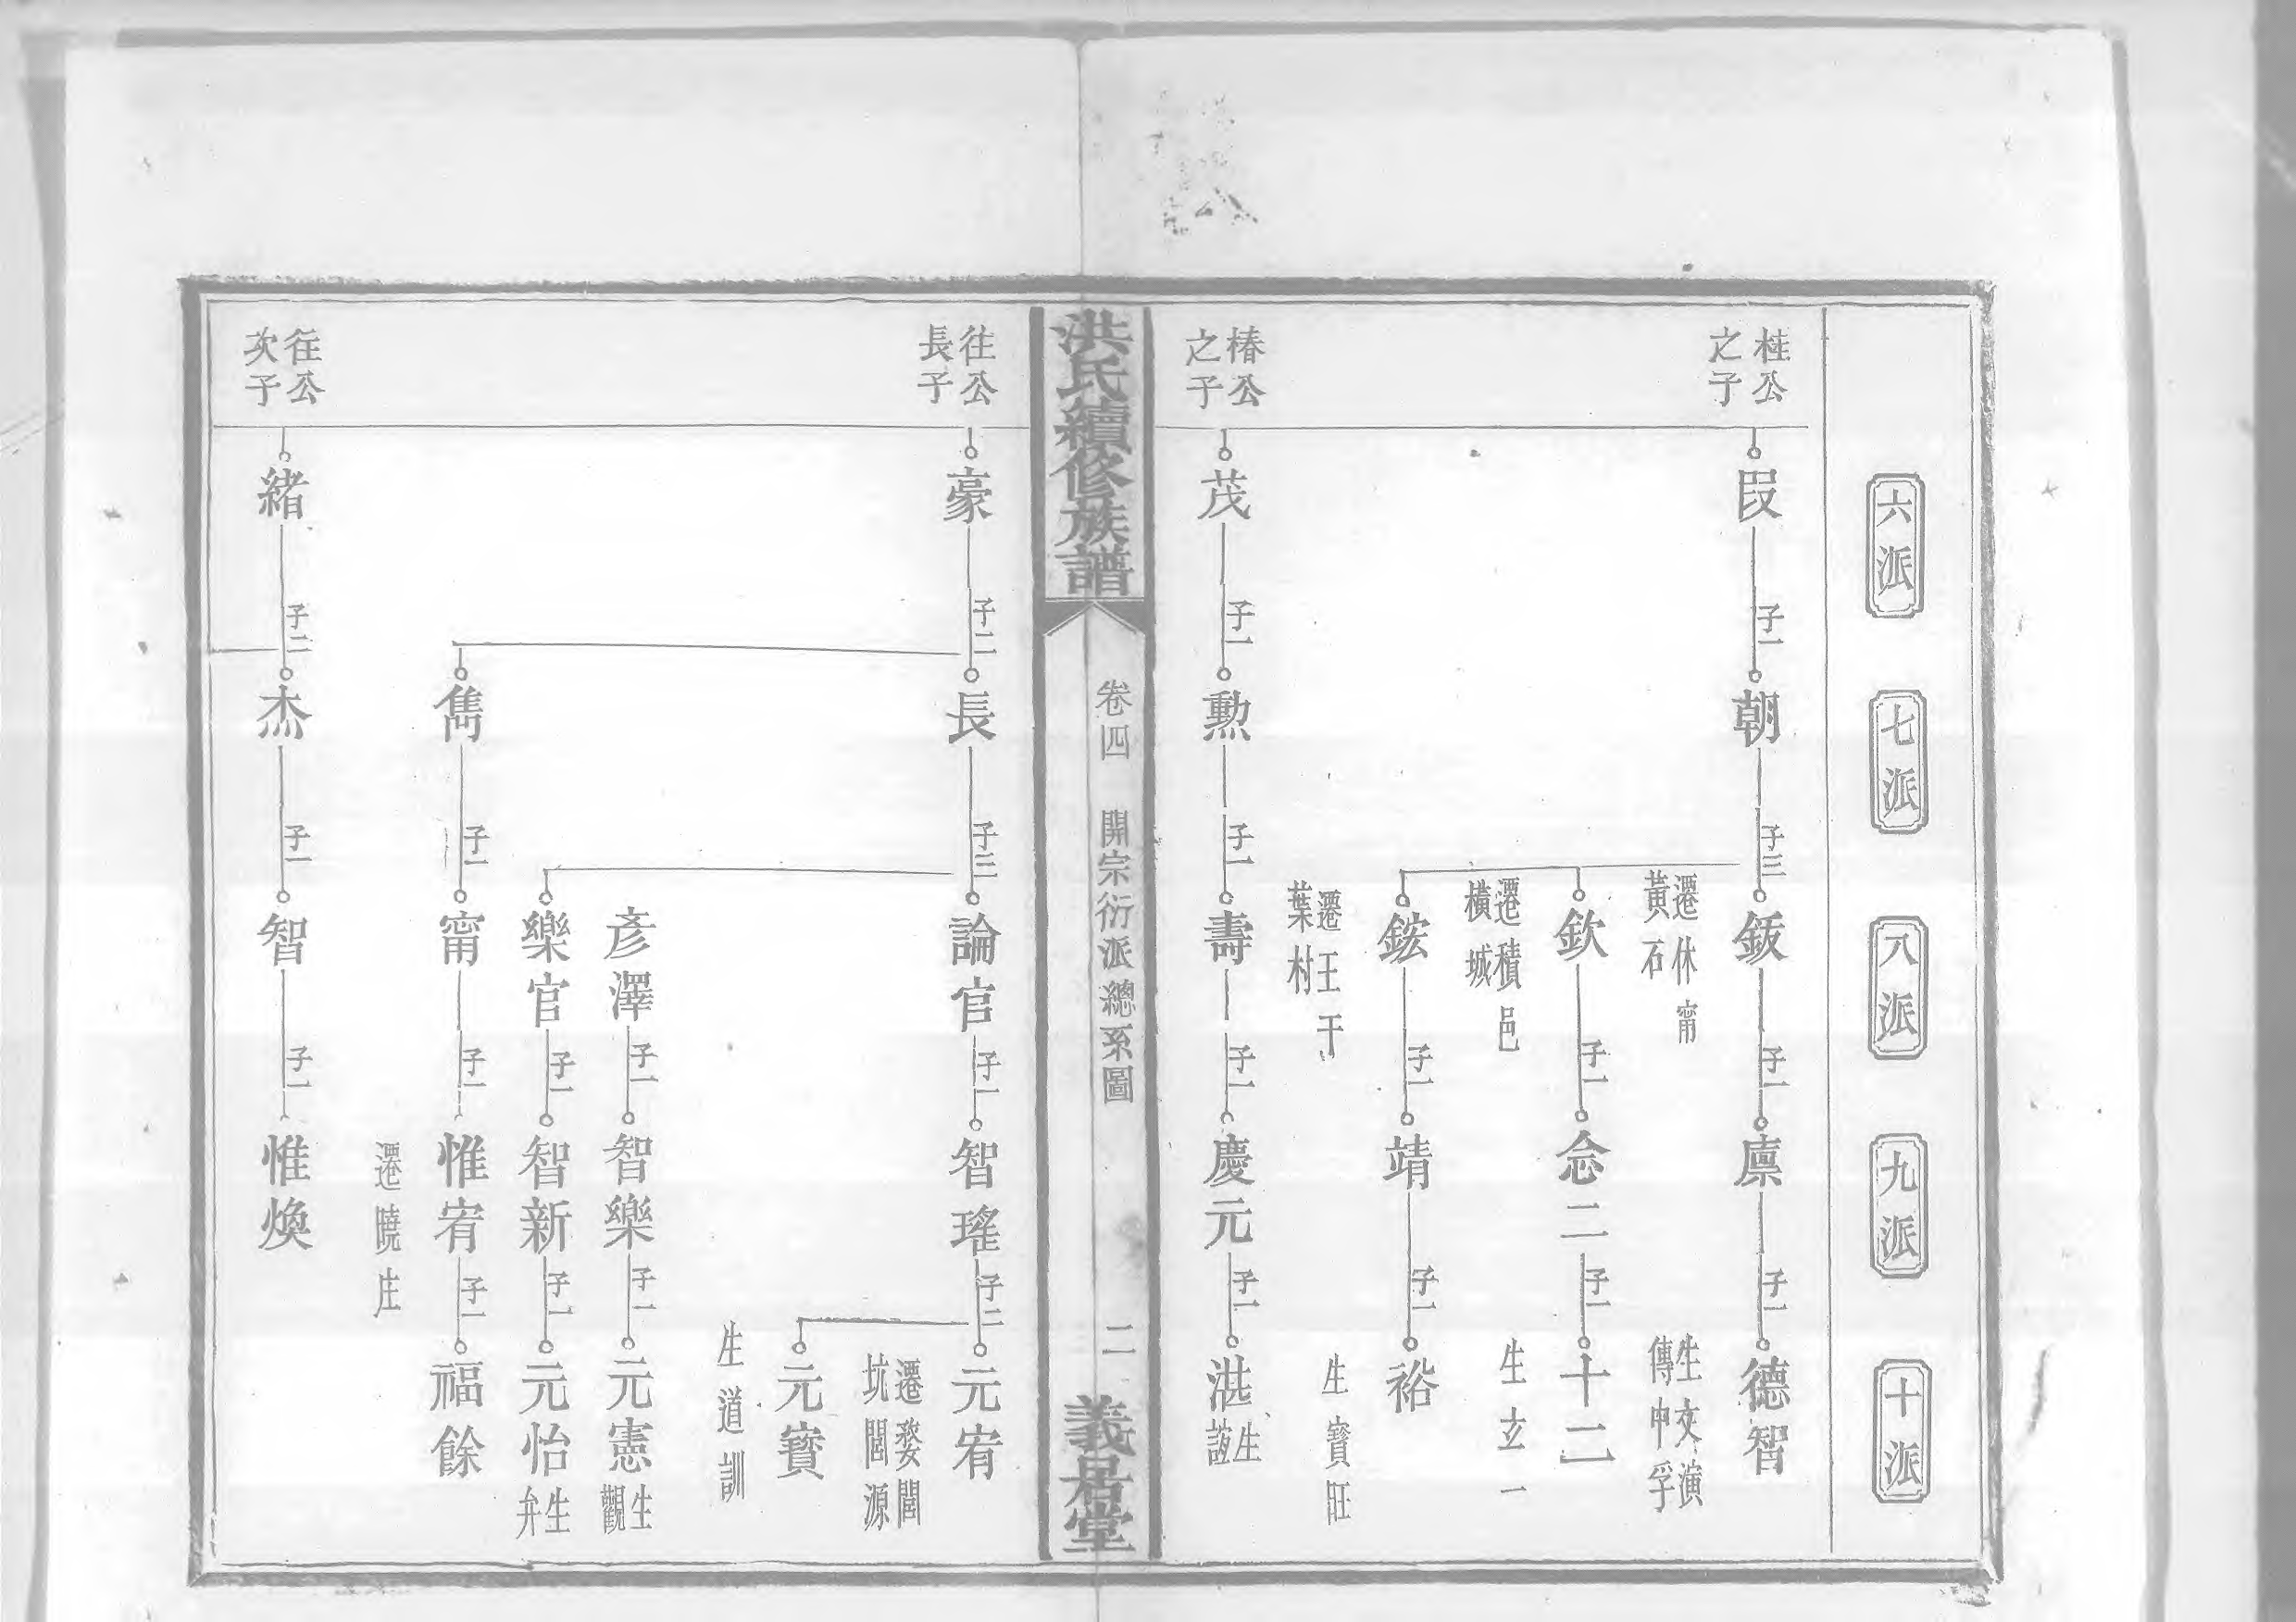 六派
七派
八派
九派
十派
桂公
之子
子一
朝
子三
遷休甯
黃石
子一
廪
子一
德智
生文演
傳中孚
欽
遷積邑
橫城
子一
念二
子一
十二
生玄一
鋐
遷王干
葉村
子一
靖
子一
裕
生寶旺
椿公
之子
茂
子一
勲
子一
壽
子一
慶元
子一
洪氏續修族譜
卷四
開宗衍派總系圖
二
義居堂
往公
長子
豪
子二
長
子三
論官
子一
智瑤
子二
元宥
遷婺閭
坑閭源
元寶
生道訓
彥澤
子一
智樂
子一
元憲
生
觀
樂官
子一
智新
子一
元怡
生
弁
雋
子一
甯
子一
惟宥
遷曉庄
子一
福餘
往公
次子
緒
子二
杰
子一
智
子一
惟煥